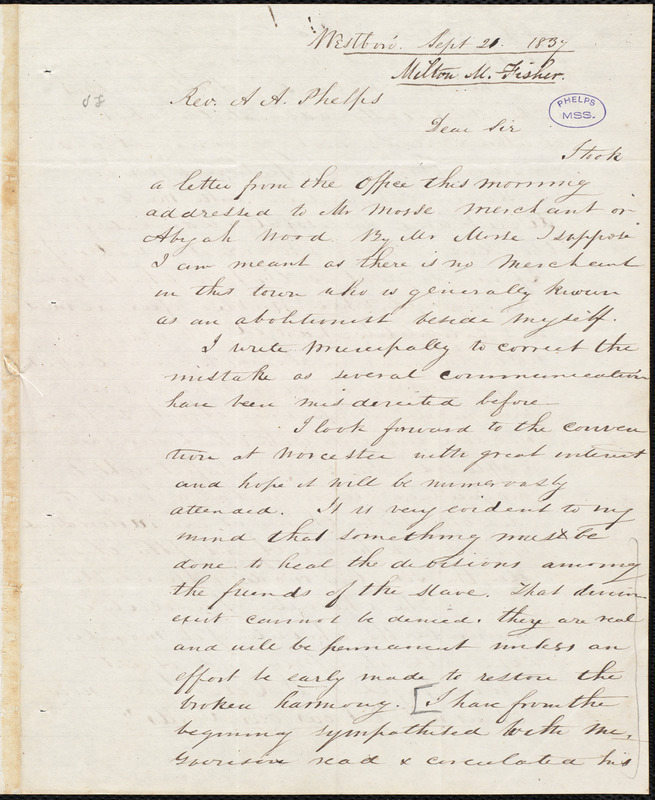 Westboro'. Sept 21. 1837
Milton M. Fisher.
Rev. A A. Phelps
PHELPS
MSS.
Dear Sir
I took
a letter from the office this morning
addressed to Mr Morse merchant or
Abijah Wood. By Mr Morse I suppose
I am meant as there is no Merchant
in this town who is generally known
as an abolitionist beside myself.
I write principally to correct the
mistake as several communication
have been misderected before.
I look forward to the conven
tion at Worcester with great interest
and hope it will be numerously
attended. It is very evident to my
mind that something must be
done to heal the divisions among
the friends of the slave. That
exist cannot be denied. they are real
and will be permanent unless an
effort be early made to restore the
broken harmony. [I have from the
beginning sympathised with Mr.
Garrison read & circulated his